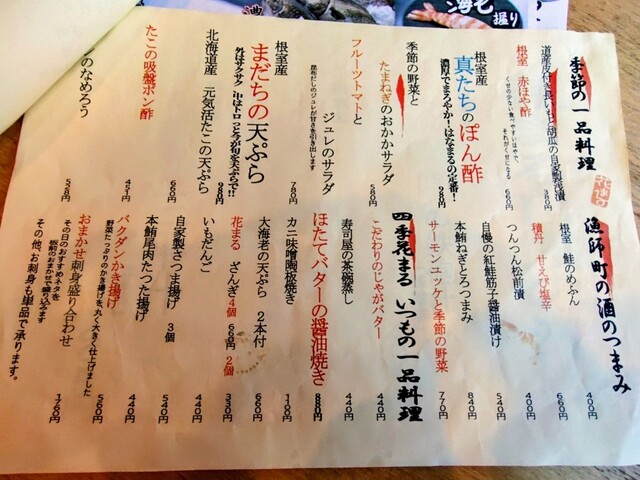 海老
握り
季節の一品料理
道産皮付き長いもと胡瓜の自家製浅漬
380円
根室 赤ほや酢
くせの少ない食べやすいほやで、
それがくせになる
660円
根室産 真たちのぽん酢
濃厚でまろやか!はなまるの定番!
980円
季節の野菜と
たまねぎのおかかサラダ
580円
フルーツトマトと
ジュレのサラダ
昆布だしのジュレが甘さを引き出します
780円
根室産
まだちの天ぷら
外はサクサク 中はトロっと今が旬を天ぷらで!!
980円
北海道産 元気活たこの天ぷら
660円
たこの吸盤ポン酢
451円
のなめろう
528円
漁師町の酒のつまみ
花まる
根室 鮭のめふん
660円
積丹 甘えび塩辛
400円
つんつん松前漬
400円
自慢の紅鮭筋子醤油漬け
540円
本鮪ねぎとろつまみ
840円
サーモンユッケと季節の野菜
770円
四季花まる いつもの一品料理
こだわりのじゃがバター
440円
寿司屋の茶碗蒸し
440円
ほたてバターの醤油焼き
880円
カニ味噌陶板焼き
1100円
大海老の天ぷら 2本付
660円
花まる ざんぎ4個 660円 2個
330円
いもだんご
440円
自家製さつま揚げ 3個
540円
本鮪尾肉たつた揚げ
440円
バクダンかき揚げ
野菜たっぷりのかき揚げを、丸く大きく仕上げました
560円
おまかせ刺身盛り合わせ
その日のおすすめネタを
板前のおまかせで盛り込みます
1760円
その他、お刺身も単品で承ります。